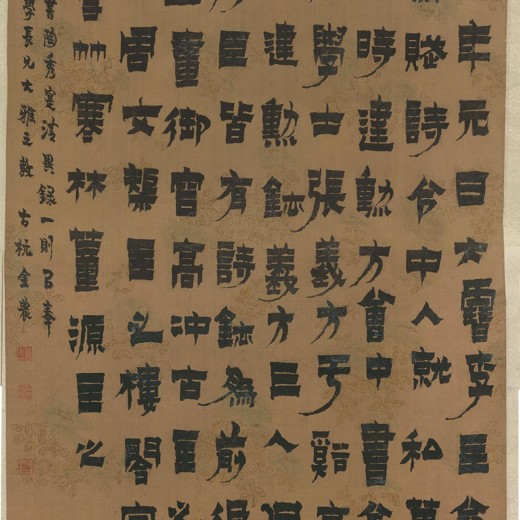 年元日大雪李主命
賦詩令中人就私
時建勳方會中書舍
學士張義方于谿亭
建勳鉉義方三人
臣皆有詩鉉為前後
畫御容高冲古主之
周文矩主之樓閣宮
雪竹寒林董源主之
書陶秀實清異録一則㠯奉
學長兄大雅之教 古杭金農